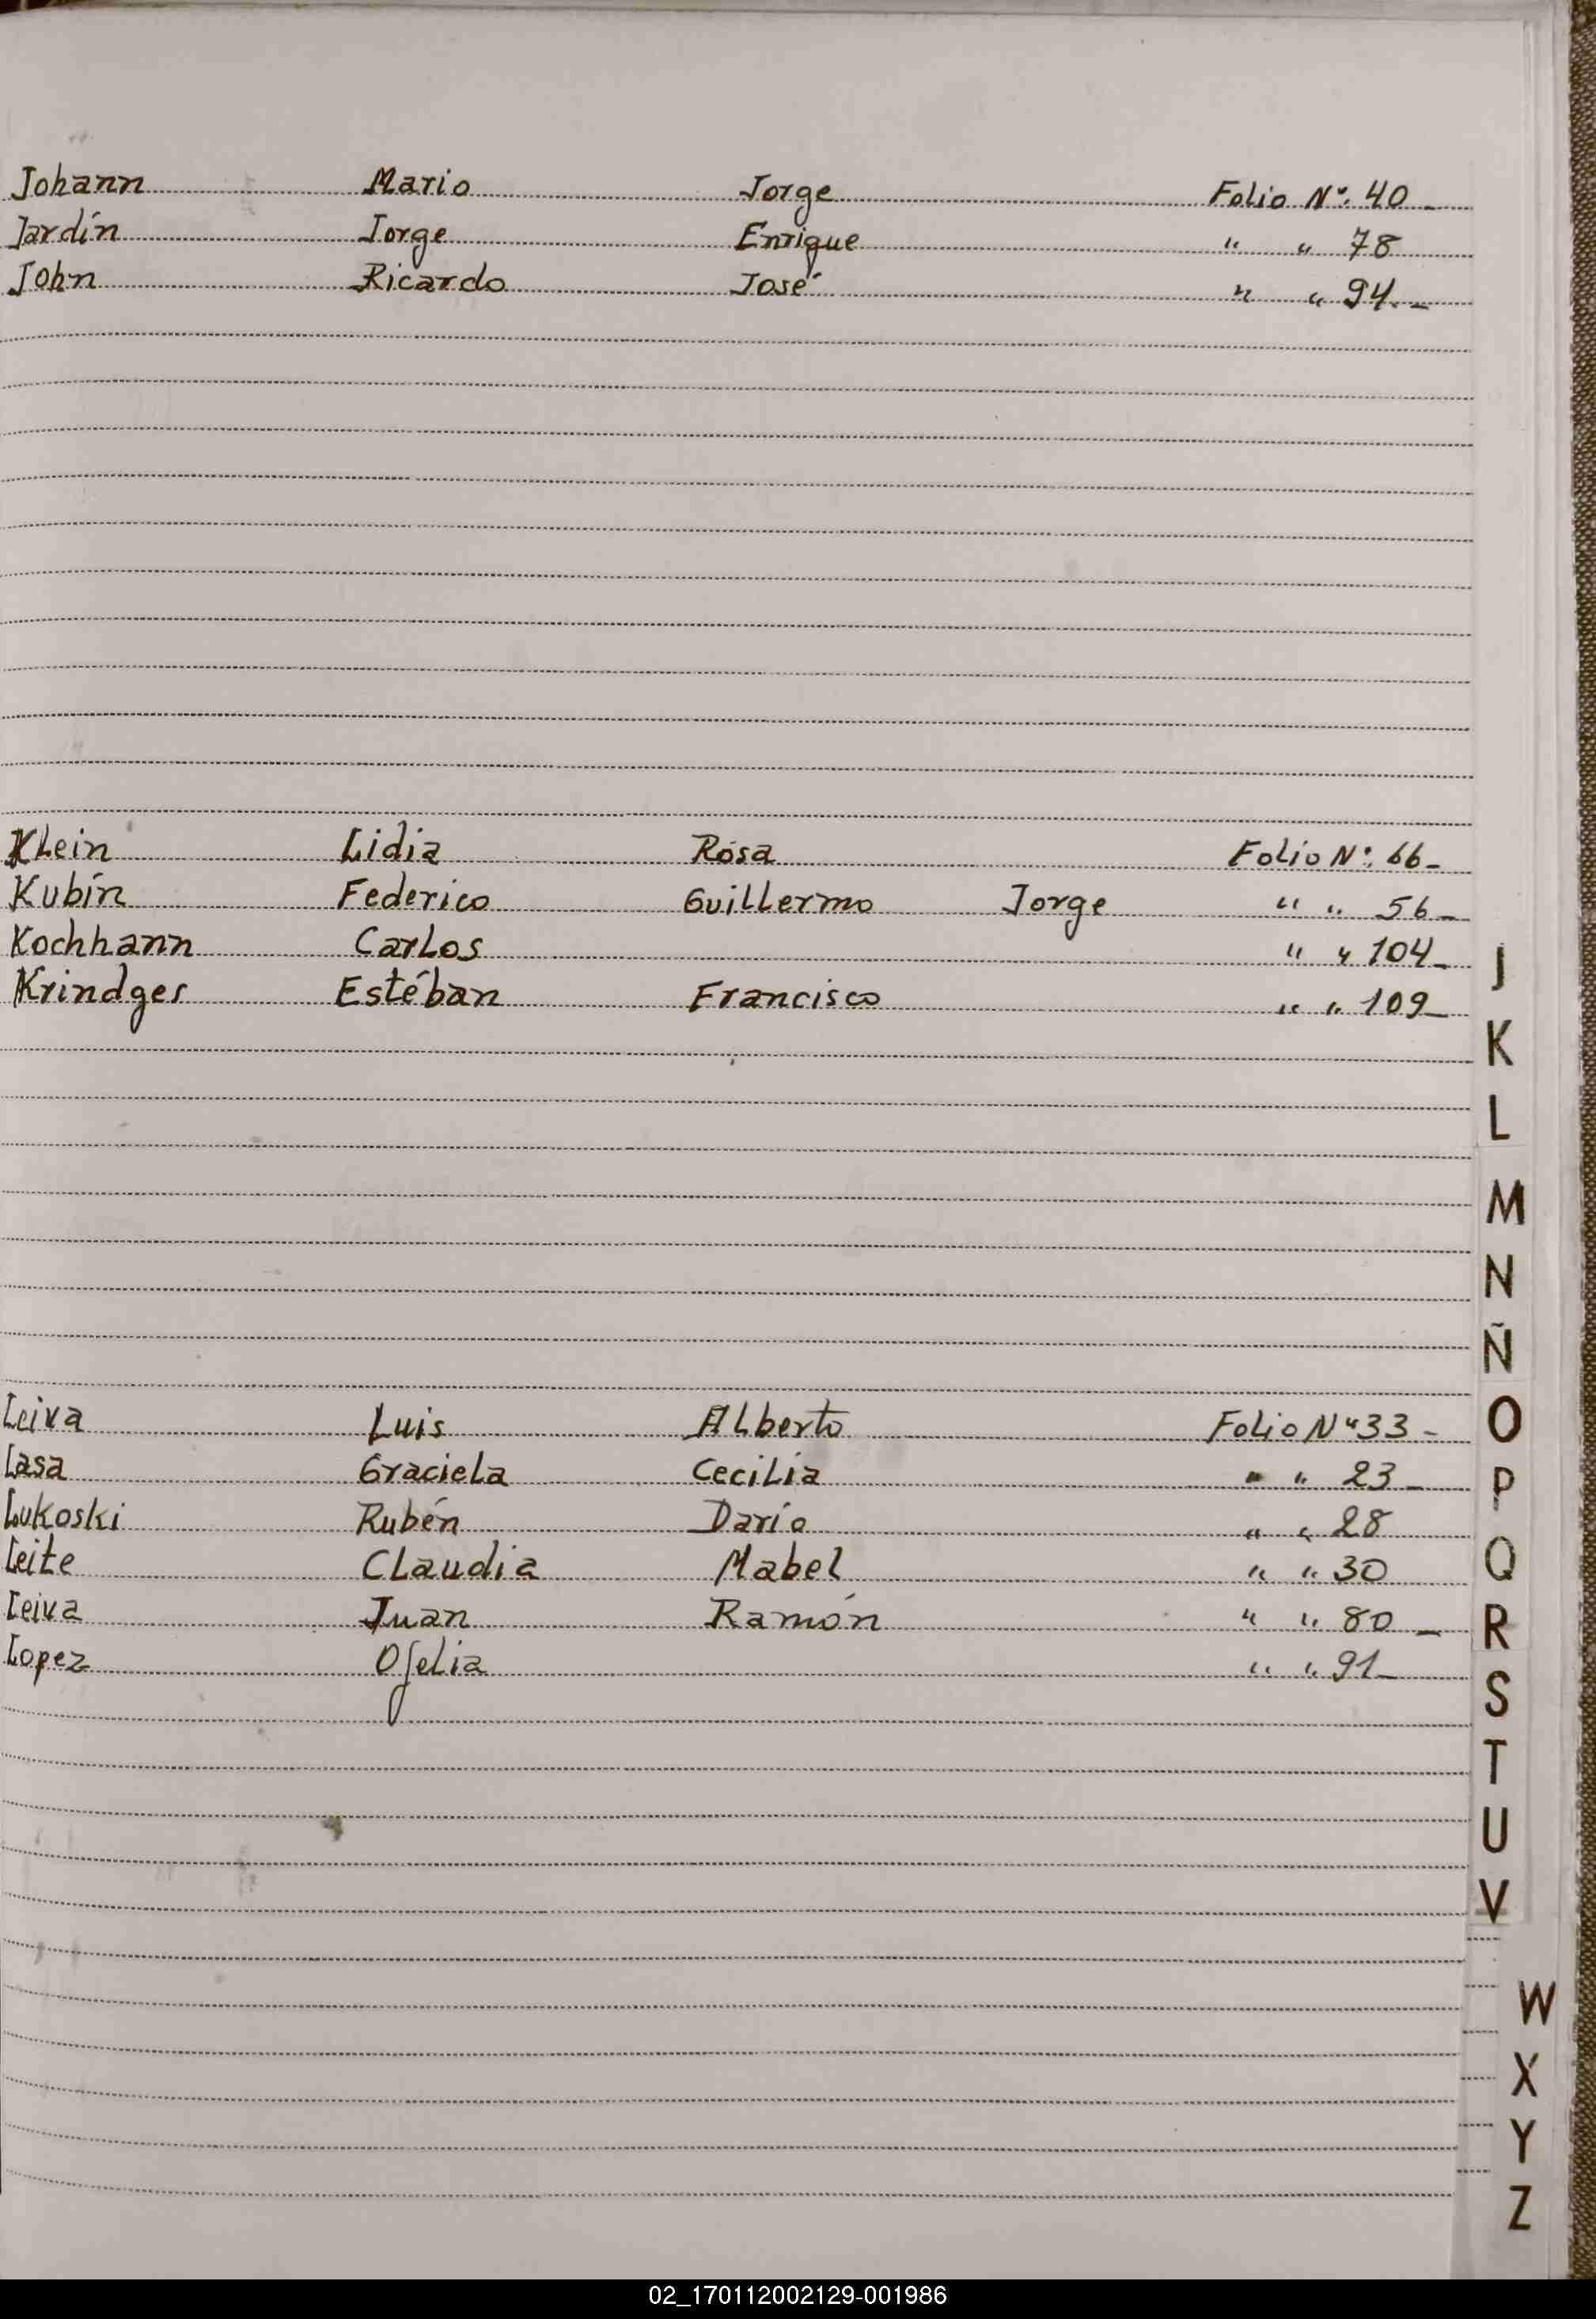 Johann Mario Jorge Folio Nº. 40 -
Jardín Jorge Enrique " " 78
John Ricardo José " " 94. -
Klein Lidia Rosa Folio Nº. 66 -
Kubín Federico Guillermo Jorge " " 56 -
Kochhann Carlos " " 104 -
Krindges Estéban Francisco " " 109 -
Leiva Luis Alberto Folio Nº 33 -
Lasa Graciela Cecilia " " 23 -
Lukoski Rubén Darío " " 28
Leite Claudia Mabel " " 30
Leiva Juan Ramón " " 80 -
Lopez Ofelia " " 91 -
J
K
L
M
N
Ñ
O
P
Q
R
S
T
U
V
W
X
Y
Z
02_170112002129-001986